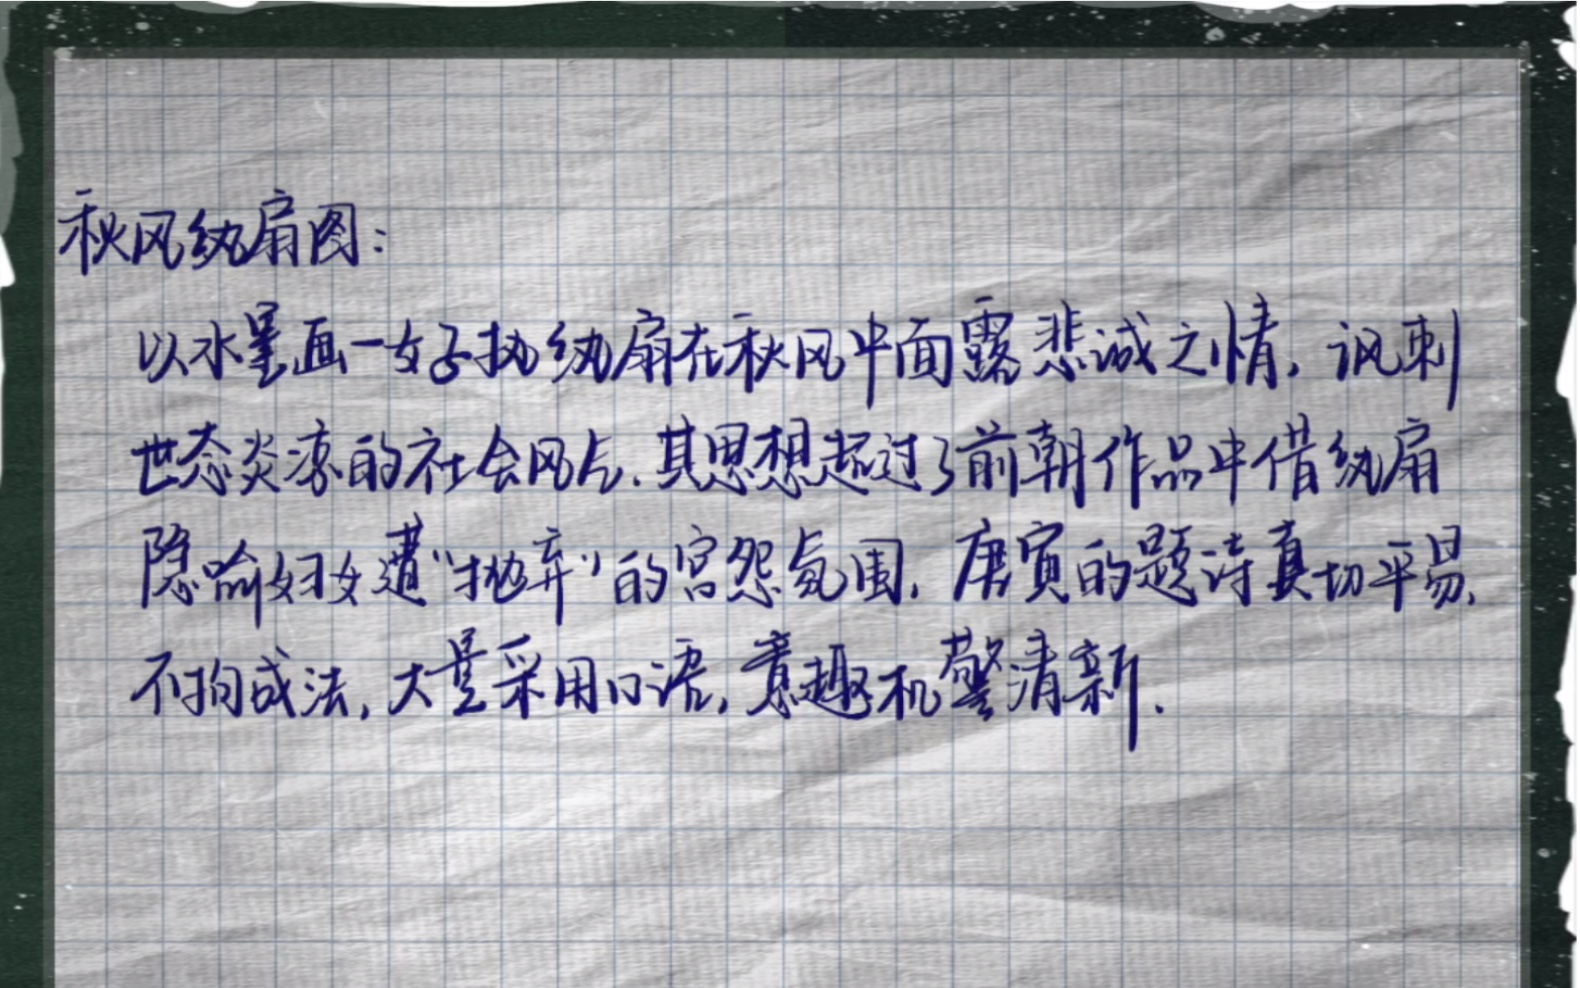 秋风纨扇图：
以水墨画一女子执纨扇在秋风中面露悲诚之情，讽刺
世态炎凉的社会风气．其思想超过了前朝作品中借纨扇
隐喻妇女遭“抛弃”的宫怨氛围．唐寅的题诗真切平易，
不拘成法，大量采用口语，意趣机警清新．